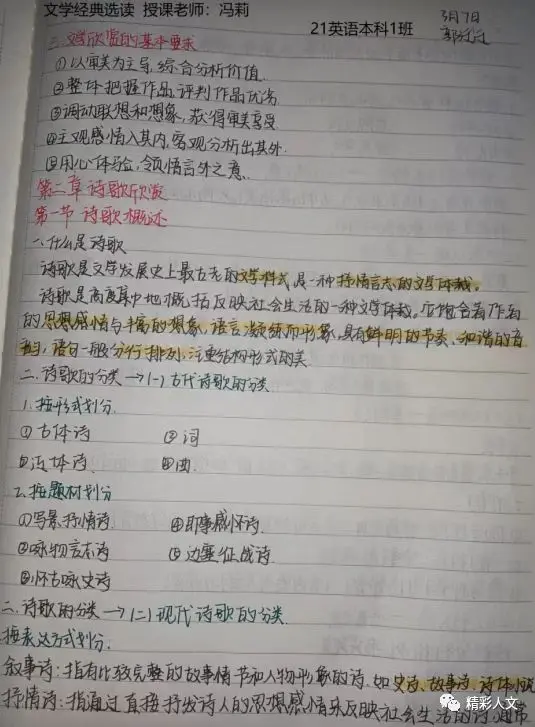 文学经典选读 授课老师：冯莉
21英语本科1班
3月7日
三.文学欣赏的基本要求
①以审美为主导,综合分析价值.
②整体把握作品,评判作品优劣
③调动联想和想象,获得审美享受.
④主观感情入其内,客观分析出其外.
⑤用心体验,领悟言外之意.
第二章诗歌欣赏
第一节 诗歌概述
一、什么是诗歌
诗歌是文学发展史上最古老的文学样式,是一种抒情言志的文学体裁。
诗歌是高度集中地概括反映社会生活的一种文学体裁。它饱含着作者
的思想感情与丰富的想象,语言凝练而形象,具有鲜明的节奏、和谐的音
韵,语句一般分行排列,注重结构形式的美.
二.诗歌的分类→(一)古代诗歌的分类
1.按形式划分.
①古体诗 ③词
②近体诗 ④曲.
2.按题材划分
①写景抒情诗 ④即事感怀诗.
②咏物言志诗 ⑤边塞征战诗.
③怀古咏史诗
二.诗歌的分类→(二)现代诗歌的分类.
按表达方式划分:
叙事诗:指有比较完整的故事情节和人物形象的诗.如史诗、故事诗、诗体小说
抒情诗:指通过直接抒发诗人的思想感情来反映社会生活的诗,通常
精彩人文